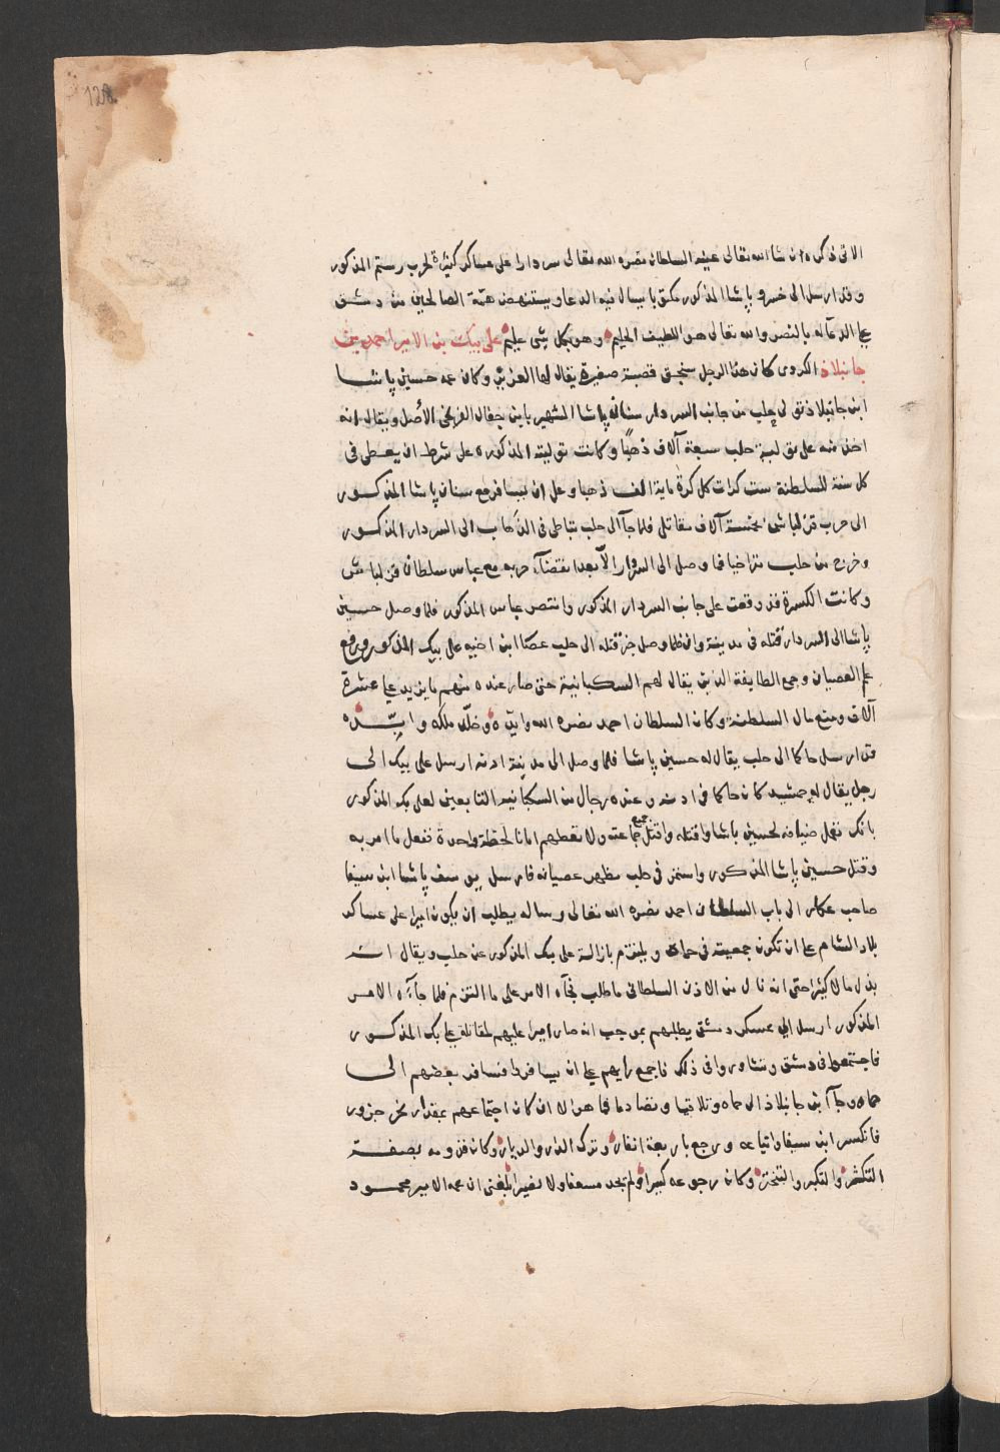 128
الاتى ذكره ان شا الله تعالى عينه السلطان نصره الله تعالى سردارا على عساكر كثيرة لحرب رستم المذكور
وقد ارسل الى خسرو پاشا المذكور مكتوبا يسال فيه الدعا ويستنهض همة الصالحين من دمشق
على الدعا له بالنصر والله تعالى هو اللطيف الحليم وهو بكل شى عليم على بيك بن الامير احمد بن
جانبلاذ الكردى كان هذا الرجل سنجق قصبة صغيرة يقال لها العزيز وكان عمه حسين پاشا
ابن جانبلاذ تولى حلب من جانب السردار سنان پاشا الشهير بابن جغال الفرنجى الأصل ويقال انه
اخذ منه على تولية حلب سبعة آلاف ذهبًا وكانت توليته المذكوره على شرط ان يعطى فى
كل سنة للسلطنة ست كرات كل كرة ماية الف ذهبا وعلى ان يسافر مع سنان پاشا المذكور
الى حرب قزلباش بخمسة آلاف مقاتل فلما جآ الى حلب تباطى فى الذهاب الى السردار المذكور
وخرج من حلب متراخيا فما وصل الى السردار الا بعد انقضآ حربه مع عباس سلطان قزلباش
وكانت الكسرة قد وقعت على جانب السردار المذكور وانتصر عباس المذكور فلما وصل حسين
پاشا الى السردار قتله فى مدينة وان فلما وصل خبر قتله الى حلب عصا ابن اخيه على بيك المذكور ورفع
علم العصيان وجمع الطايفة الذين يقال لهم السكبانية حتى صار عنده منهم ما يزيد على عشرة
آلاف ومنع مال السلطنة وكان السلطان احمد نصره الله وايده وخلّد ملكه وابّده
قد ارسل حاكما الى حلب يقال له حسين پاشا فلما وصل الى مدينة ادنه ارسل على بيك الى
رجل يقال له جمشيد كان حاكما فى ادنه وعنده رجال من السكبانيه التابعين لعلى بك المذكور
بانك تعمل ضيافه لحسين باشا واقتله واقتل جميع جماعته ولا تعطهم امانا لحظة واحدة ففعل ما امر به
وقتل حسين پاشا المذكور واستمر فى حلب مظهر عصيانه فارسل يوسف پاشا ابن سيفا
صاحب عكار الى باب السلطان احمد نصره الله تعالى رساله يطلب ان يكون اميرا على عساكر
بلاد الشام على ان تكون جمعيته فى حماة ويلتزم بازالة على بك المذكور عن حلب ويقال انه
بذل مالا كثيرا حتى انه نال من الاذن السلطانى ما طلب فجآه الامر على ما التزم فلما جآءه الامر
المذكور ارسل الى عسكر دمشق يطلبهم بموجب انه صار اميرا عليهم لمقاتلة على بك المذكور
فاجتمعوا فى دمشق وتشاوروا فى ذلك فاجمع رايهم على ان يسافروا فسافر بعضهم الى
حماه وجآ ابن جانبلاذ الى حماه وتلاقيا وتصادما فما هو الا ان كان اجتماعهم بمقدار نحر جزور
فانكسر ابن سيفا واتباعه ورجع باربعة انفار وترك الدار والديار وكان قدومه بصفة
التكثر والتكبر والتبختر وكان رجوعه كسيرا ولم يجد مسعفا ولا نصيرا بلغنى ان عمه الامير محمود